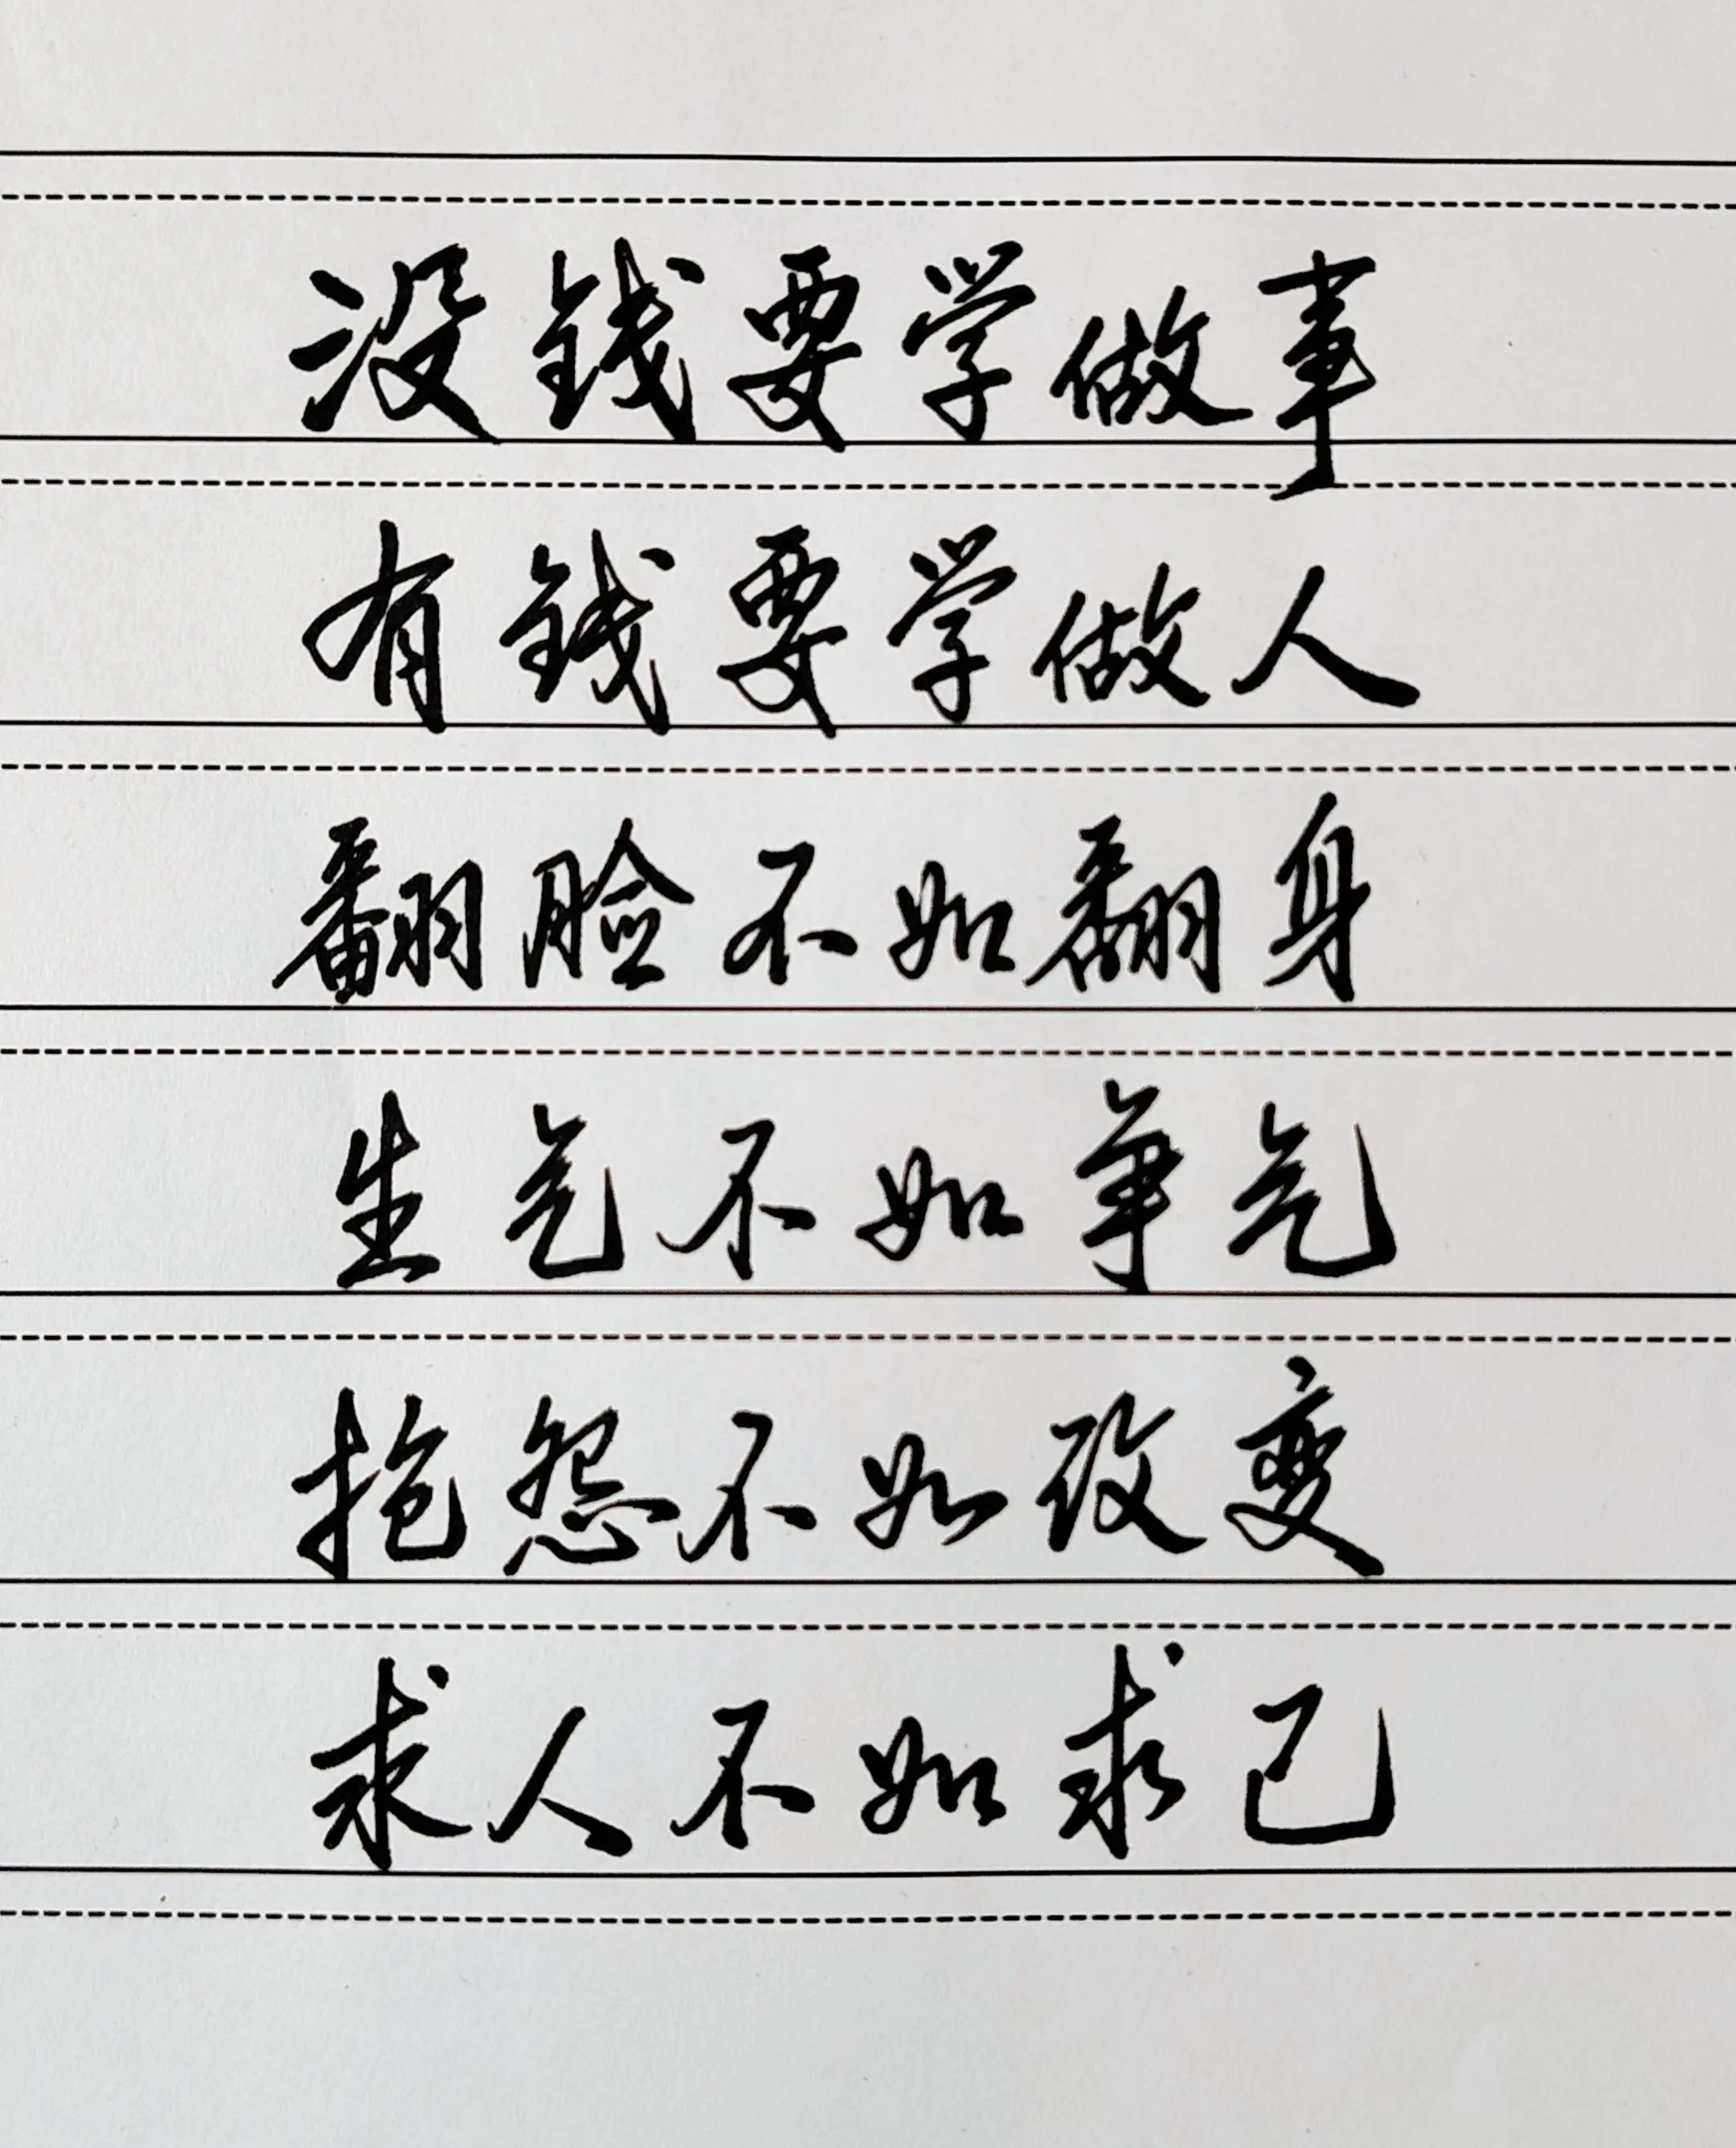 没钱要学做事
有钱要学做人
翻脸不如翻身
生气不如争气
抱怨不如改变
求人不如求己